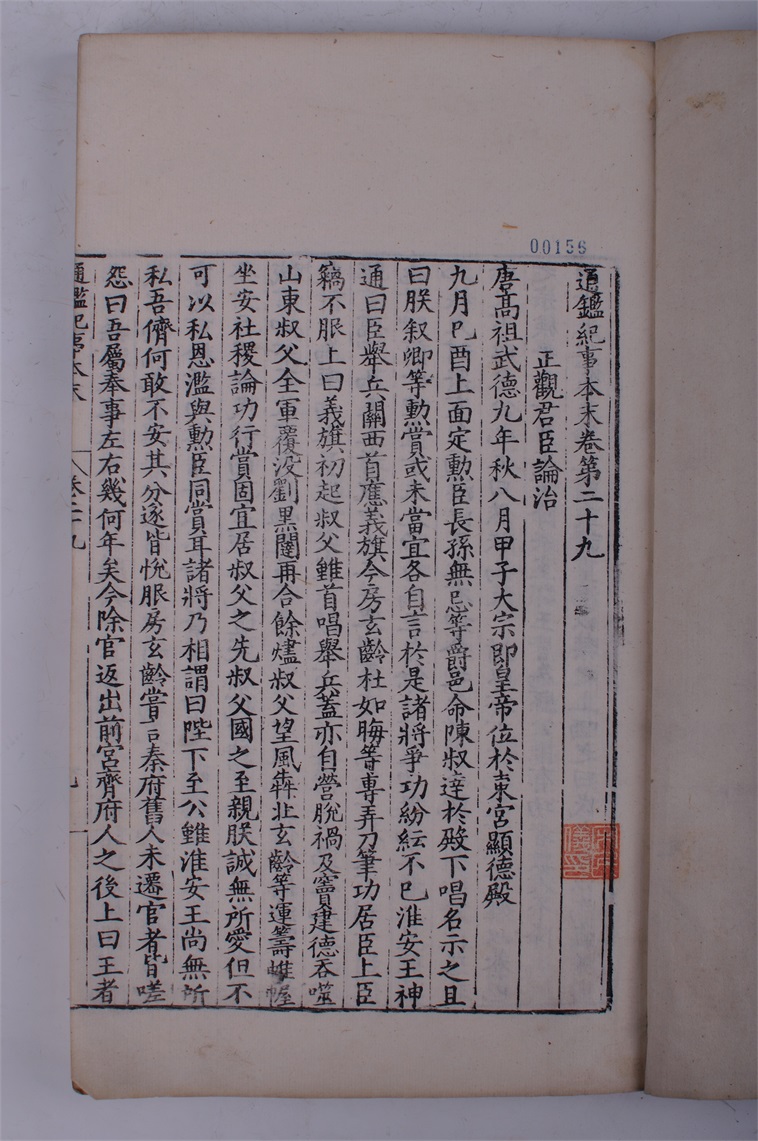 00156
通鑑紀事本末卷第二十九
正觀君臣論治
唐高祖武德九年秋八月甲子大宗即皇帝位於東宮顯德殿
九月己酉上面定勲臣長孫無忌等爵邑命陳叔達於殿下唱名示之且
曰朕叙卿等勲賞或未當宜各自言於是諸將爭功紛紜不已淮安王神
通曰臣舉兵關西首應義旗今房玄齡杜如晦等專弄刀筆功居臣上臣
竊不服上曰義旗初起叔父雖首唱舉兵蓋亦自營脫禍及竇建德吞噬
山東叔父全軍覆没劉黑闥再合餘燼叔父望風犇北玄齡等運籌帷幄
坐安社稷論功行賞固宜居叔父之先叔父國之至親朕誠無所愛但不
可以私恩濫與勲臣同賞耳諸將乃相謂曰陛下至公雖淮安王尚無所
私吾儕何敢不安其分遂皆悅服房玄齡嘗言秦府舊人未遷官者皆嗟
怨曰吾屬奉事左右幾何年矣今除官返出前宮齊府人之後上曰王者
通鑑紀事本末 卷二十九 九